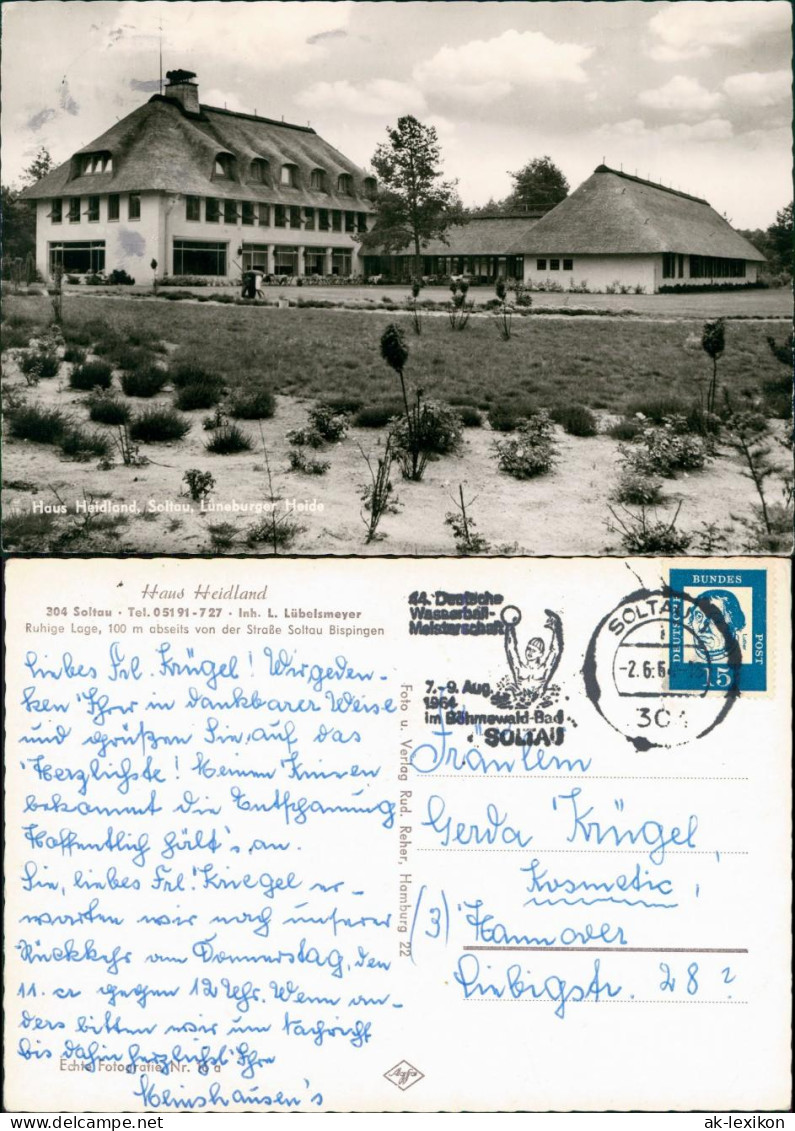 Haus Heidland, Soltau, Lüneburger Heide
Haus Heidland
304 Soltau · Tel. 05191-727 · Inh. L. Lübelsmeyer
Ruhige Lage, 100 m abseits von der Straße Soltau Bispingen
Liebes Frl. Krügel! Wir geden-
ken Ihrer in dankbarer Weise
und grüßen Sie, auf das
Herzlichste! Meinen
bekommt die Entspannung
Hoffentlich hält's an.
Sie, liebes Frl. Kriegel er-
warten wir nach unserer
Rückkehr am Donnerstag, den
11. cr gegen 12 Uhr. Wenn an-
ders bitten wir um Nachricht
bis dahin herzlichst Ihre
Echte Fotografie Nr. 16 a
Foto u. Verlag Rud. Reher, Hamburg 22
Agfa
44. Deutsche
Wasserball-
Meisterschaft
7.-9. Aug.
1964
im Böhmewald-Bad
SOLTAU
SOLTAU
-2.6.64
304
DEUTSCHE
BUNDES
POST
Luther
15
Fräulein
Gerda Krügel,
Kosmetic,
(3) Hannover
Liebigstr. 28?
ak-lexikon
Haus Heidland, Soltau, Lüneburger Heide DELCAMPE.NET